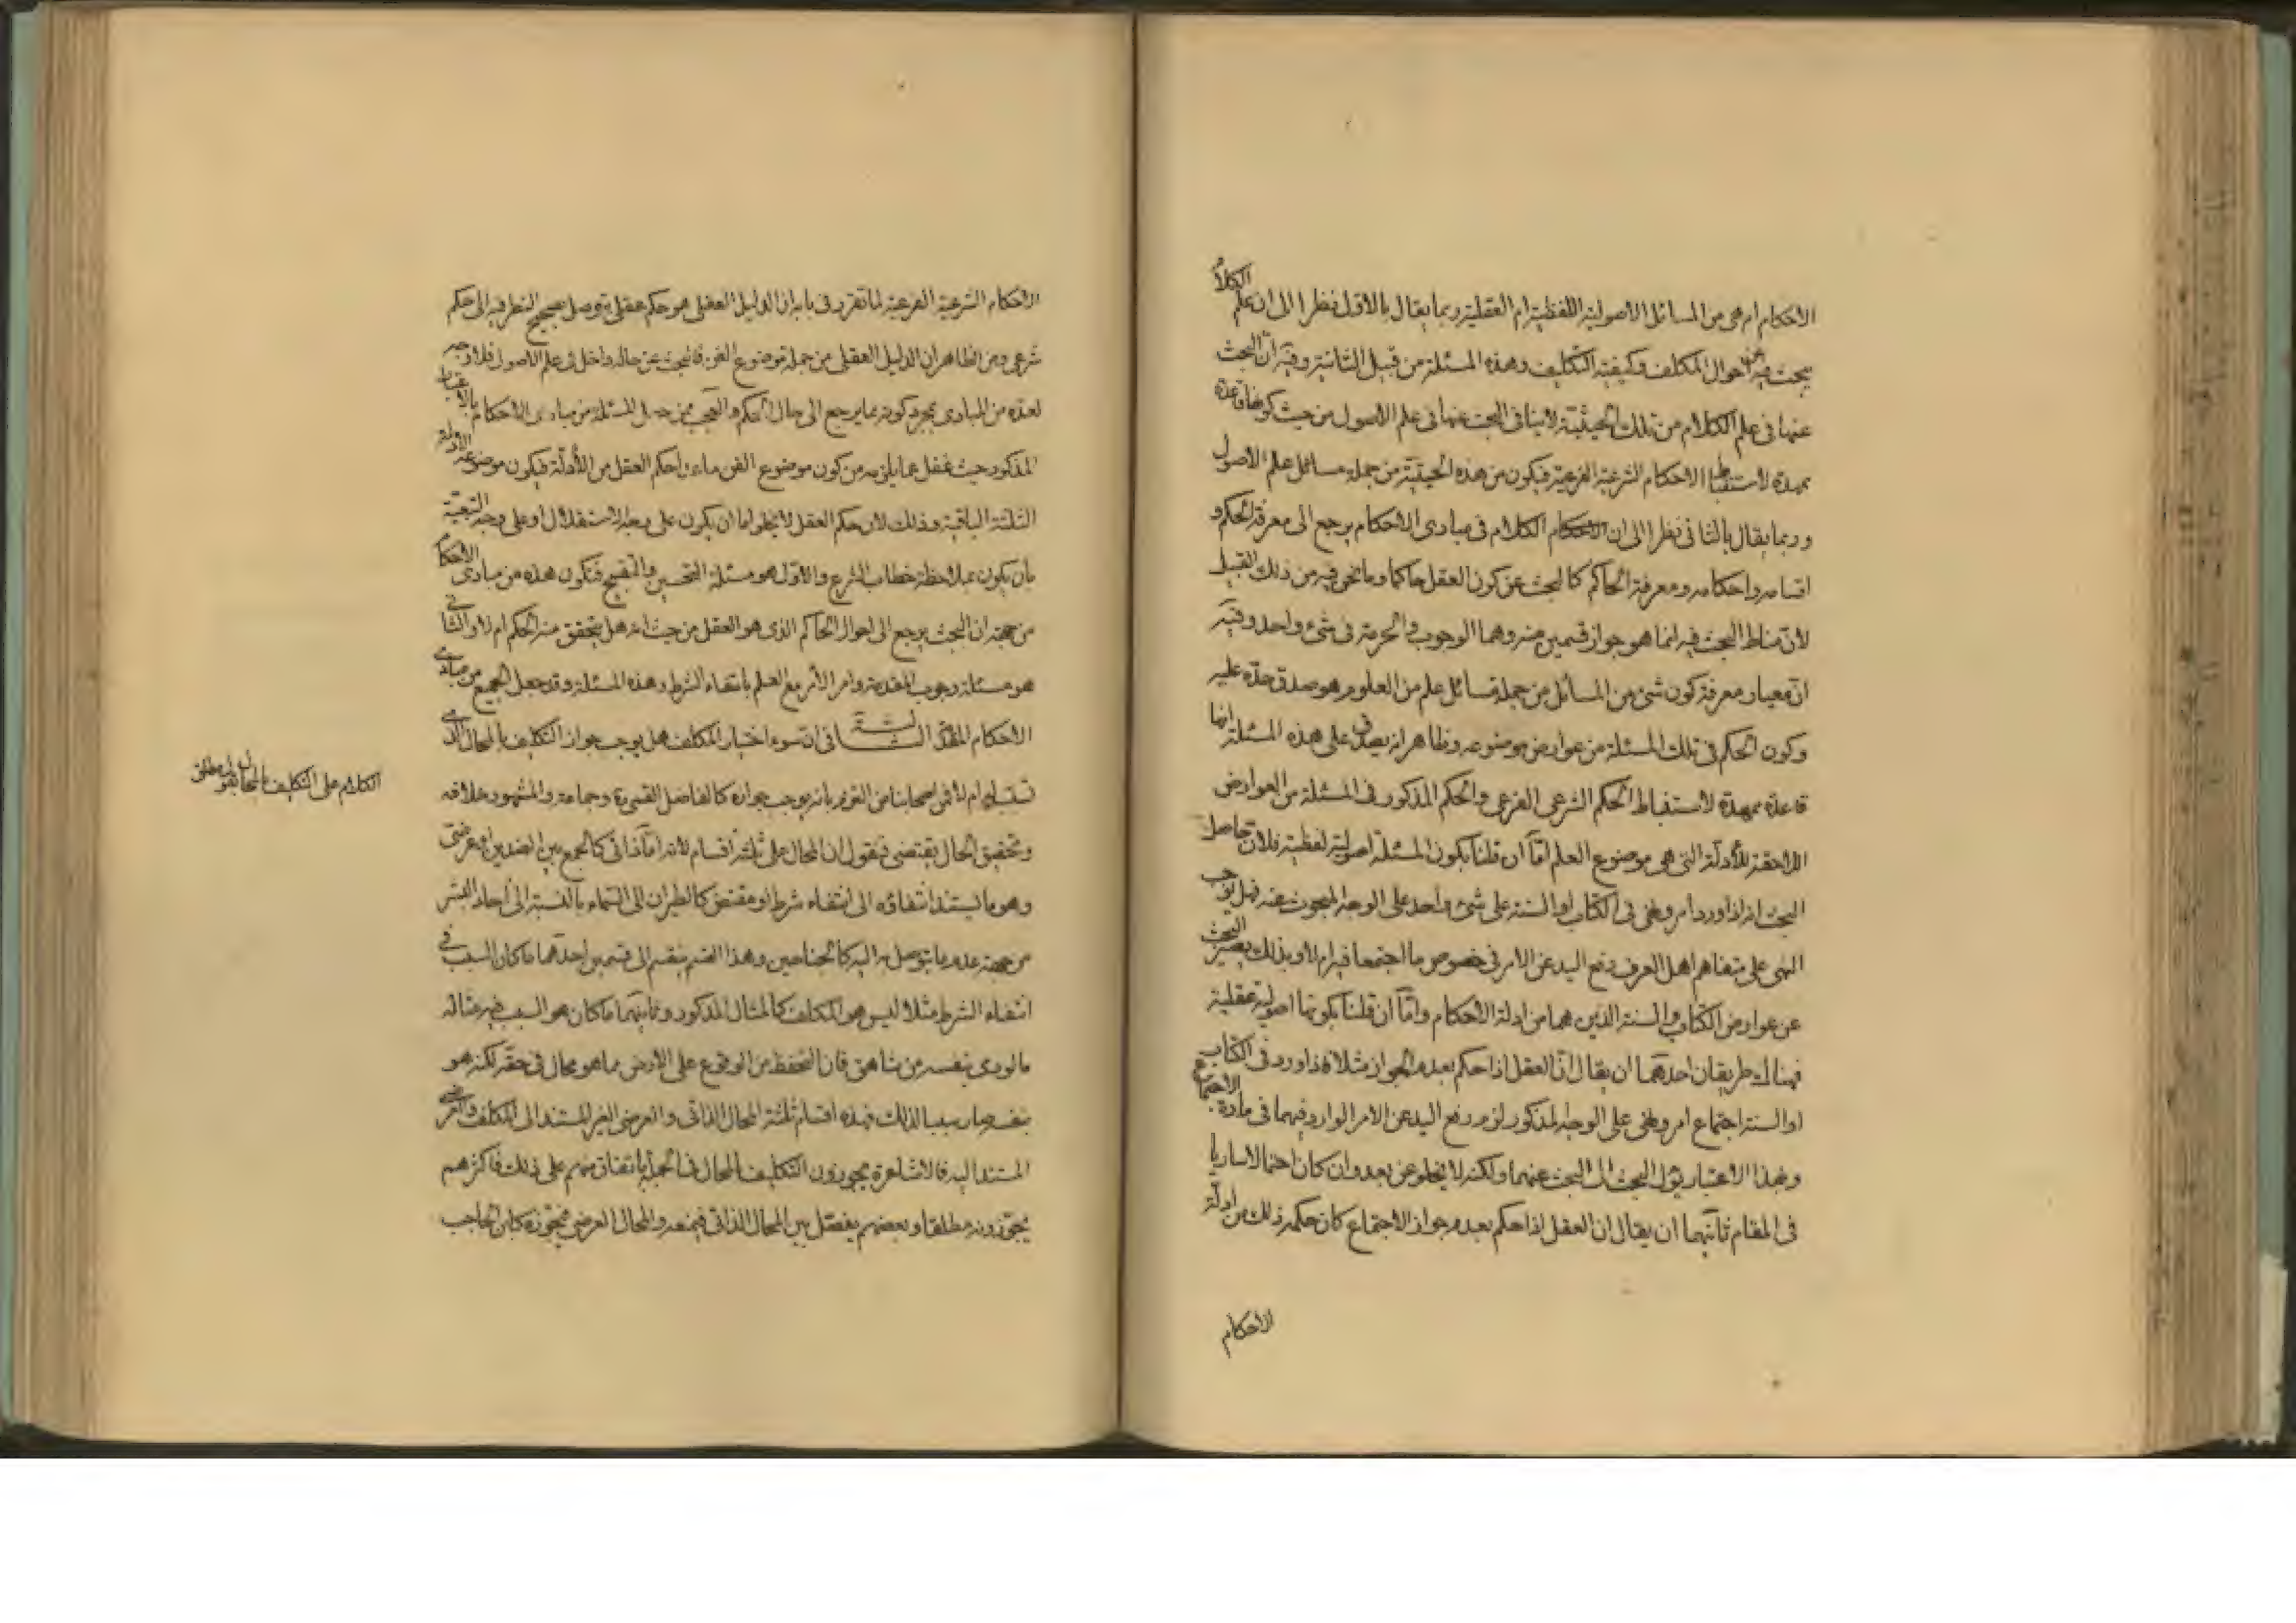 الاحكام ام هى من المسائل الاصولية اللفظية ام العقلية ربما يقال بالاول نظرا الى ان علم الكلام
يبحث فيه عن احوال المكلف وكيفية التكليف وهذه المسئلة من قبيل الثانية وفيه ان البحث
عنها فى علم الكلام من تلك الحيثية لا ينافى البحث عنها فى علم الاصول من حيث كونها قاعدة
ممهدة لاستنباط الاحكام الشرعية الفرعية فيكون من هذه الحيثية من جملة مسائل علم الاصول
وربما يقال بالثانى نظرا الى ان الكلام فى مبادى الاحكام يرجع الى معرفة الحكم و
اقسامه واحكامه ومعرفة الحاكم كالبحث عن كون العقل حاكما وما نحن فيه من ذلك القبيل
لان مناط البحث فيه انما هو جواز قسمين منه وهما الوجوب والحرمة فى شئ واحد وفيه
ان معيار معرفة كون شئ من المسائل من جملة مسائل علم من العلوم هو صدق حده عليه
وكون الحكم فى تلك المسئلة من عوارض موضوعه وظاهر انه يصدق على هذه المسئلة انها
قاعدة ممهدة لاستنباط الحكم الشرعى الفرعى والحكم المذكور فى المسئلة من العوارض
اللاحقة للأدلة التى هى موضوع العلم امّا ان قلنا بكون المسئلة اصولية لفظية فلان حاصل
البحث انه اذا ورد امر ونهى فى الكتاب او السنة على شئ واحد على الوجه المبحوث عنه فهل يوجب
النهى على متفاهم اهل العرف رفع اليد عن الامر فى خصوص ما اجتمعا فيه ام لا وبذلك يصير البحث
عن عوارض الكتاب والسنة الذين هما من ادلة الاحكام وامّا ان قلنا بكونها اصولية عقلية
فهناك طريقان احدهما ان يقال انّ العقل اذا حكم بعدم الجواز مثلا فاذا ورد فى الكتاب
او السنة اجتماع امر ونهى على الوجه المذكور لزم رفع اليد عن الامر الوارد فيهما فى مادة الاجتماع
وبهذا الاعتبار يؤل البحث الى البحث عنهما ولكنه لا يخلو عن بعد وان كان احتمالا ساريا
فى المقام ثانيهما ان يقال ان العقل اذا حكم بعدم جواز الاجتماع كان حكمه ذلك من ادلة
الاحكام
الاحكام الشرعية الفرعية لما تقرر فى بابه ان الدليل العقلى هو حكم عقلى يتوصل بصحيح النظر فيه الى حكم
شرعى ومن الظاهر ان الدليل العقلى من جملة موضوع الفن فالبحث عن حاله داخل فى علم الاصول فلا وجه
لعده من المبادى بمجرد كونه مما يرجع الى حال الحكم والعجب ممن جعل المسئلة من مبادى الاحكام بالاعتبار
المذكور حيث غفل عما يلزمه من كون موضوع الفن ما عدا حكم العقل من الأدلة فيكون موضوعه الأدلة
الثلثة الباقية وذلك لان حكم العقل لا يخلو اما ان يكون على وجه الاستقلال او على وجه التبعية
بان يكون بملاحظة خطاب الشرع والاول هو مسئلة التحسين والتقبيح فتكون هذه من مبادى الاحكام
من جهة ان البحث يرجع الى احوال الحاكم الذى هو العقل من حيث انه هل يتحقق منه الحكم ام لا والثانى
هو مسئلة وجوب المقدمة وامر الآمر مع العلم بانتفاء الشرط وهذه المسئلة وقد جعل الجميع من مبادى
الاحكام الثانى ان سوء اختيار المكلف هل يوجب جواز التكليف بالمحال الذى
تسبب له ام لا فمن اصحابنا من التزم بانه يوجب جوازه كالفاضل القمى ره وجماعة والمشهور خلافه
وتحقيق الحال يقتضى ان نقول ان المحال على ثلثة اقسام لانه امّا ذاتى كالجمع بين الضدين او عرضى
وهو ما يستند انتفاؤه الى انتفاء شرط او مقتض كالطيران الى السماء بالنسبة الى آحاد البشر
من جهة عدم ما يتوصل به اليه كالجناحين وهذا القسم ينقسم الى قسمين احدهما ما كان السبب فى
انتفاء الشرط مثلا ليس هو المكلف كالمثال المذكور وثانيهما ما كان هو السبب فيه مثاله
ما لو رمى بنفسه من شاهق فان التحفظ من الوقوع على الارض مما هو محال فى حقه لكنه هو
بنفسه صار سببا لذلك فهذه اقسام ثلثة المحال الذاتى والعرضى الغير المستند الى المكلف والعرضى
المستند اليه فالاشاعرة يجوزون التكليف بالمحال فى الجملة باتفاق منهم على ذلك فاكثرهم
يجوّزونه مطلقا وبعضهم يفصّل بين المحال الذاتى فيمنعه والمحال العرضى فيجوّزه كابن الحاجب
الكلام على التكليف بالمحال